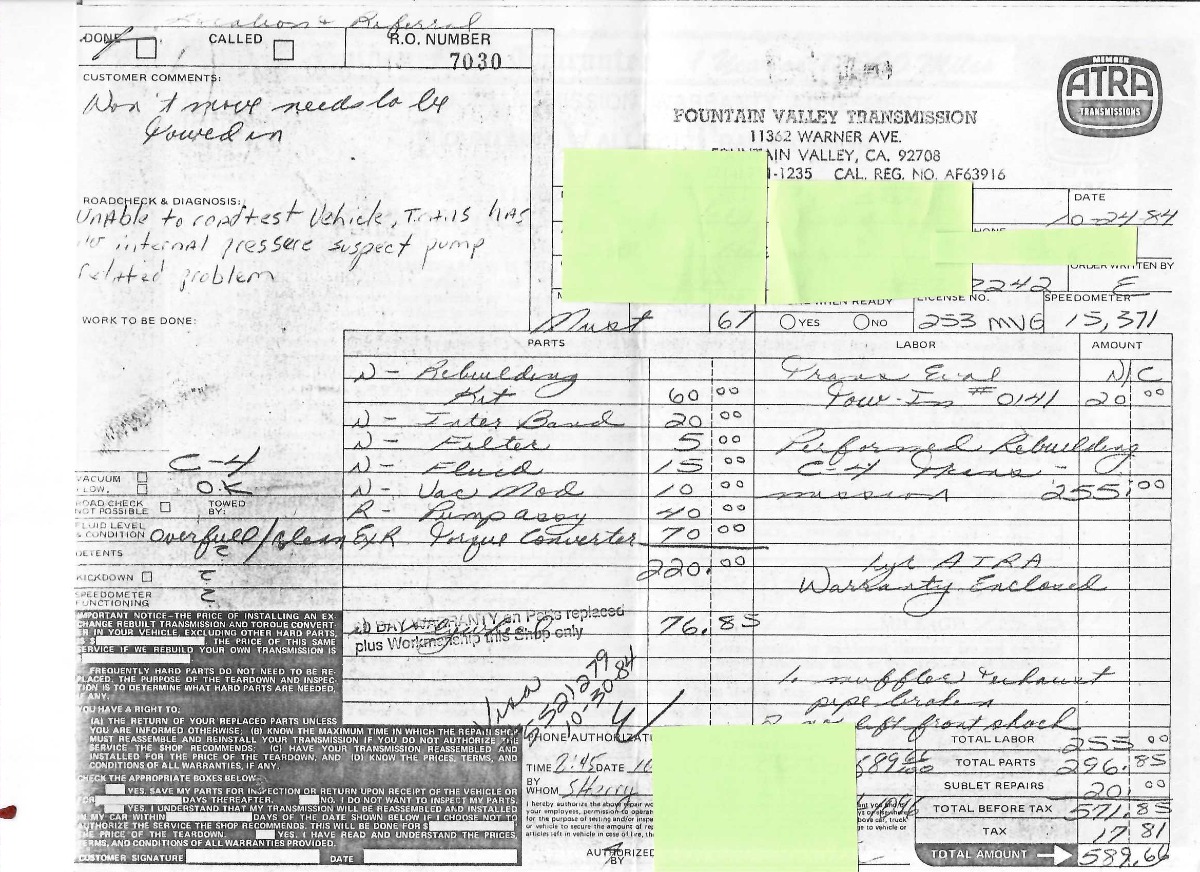 Location + Referral
DONE
CALLED
R.O. NUMBER
7030
CUSTOMER COMMENTS:
Won't move needs to be
towed in
ROADCHECK & DIAGNOSIS:
UnAble to roadtest Vehicle, Trans has
no internal pressure suspect pump
related problem
WORK TO BE DONE:
C-4
VACUUM
FLOW,
OK
ROAD CHECK
NOT POSSIBLE
TOWED
BY:
FLUID LEVEL
& CONDITION Overfull/clean
DETENTS
KICKDOWN
SPEEDOMETER
FUNCTIONING
MEMBER
ATRA
TRANSMISSIONS
FOUNTAIN VALLEY TRANSMISSION
11362 WARNER AVE.
FOUNTAIN VALLEY, CA. 92708
1-1235 CAL. REG. NO. AF63916
DATE
10-24-84
ORDER WRITTEN BY
2242 E
WHEN READY
YES NO
LICENSE NO.
253 MVG
SPEEDOMETER
15,371
Must 67
PARTS
N - Rebuilding
Kit 60 00
N - Inter Band 20 00
N - Filter 5 00
N - Fluid 15 00
N - Vac Mod 10 00
R - Pump assy 40 00
ExR Torque Converter 70 00
220.00
30 DAY WARRANTY on Parts replaced
plus Workmanship this Shop only
76.85
LABOR AMOUNT
Trans Eval N/C
Tow-In #0141 20 00
Performed Rebuilding
C-4 Trans-
mission 255.00
1 yr ATRA
Warranty Enclosed
1. muffler & exhaust
pipe broken
left front shock
Visa
521279
10-30-84
IMPORTANT NOTICE—THE PRICE OF INSTALLING AN EX-
CHANGE REBUILT TRANSMISSION AND TORQUE CONVERT-
ER IN YOUR VEHICLE, EXCLUDING OTHER HARD PARTS,
$ . THE PRICE OF THIS SAME
SERVICE IF WE REBUILD YOUR OWN TRANSMISSION IS
FREQUENTLY HARD PARTS DO NOT NEED TO BE RE-
PLACED. THE PURPOSE OF THE TEARDOWN AND INSPEC-
TION IS TO DETERMINE WHAT HARD PARTS ARE NEEDED,
IF ANY.
YOU HAVE A RIGHT TO:
(A) THE RETURN OF YOUR REPLACED PARTS UNLESS
YOU ARE INFORMED OTHERWISE, (B) KNOW THE MAXIMUM TIME IN WHICH THE REPAIR SHOP
MUST REASSEMBLE AND REINSTALL YOUR TRANSMISSION IF YOU DO NOT AUTHORIZE THE
SERVICE THE SHOP RECOMMENDS; (C) HAVE YOUR TRANSMISSION REASSEMBLED AND
INSTALLED FOR THE PRICE OF THE TEARDOWN, AND (D) KNOW THE PRICES, TERMS, AND
CONDITIONS OF ALL WARRANTIES, IF ANY.
CHECK THE APPROPRIATE BOXES BELOW—
YES. SAVE MY PARTS FOR INSPECTION OR RETURN UPON RECEIPT OF THE VEHICLE OR
FOR DAYS THEREAFTER. NO. I DO NOT WANT TO INSPECT MY PARTS.
YES. I UNDERSTAND THAT MY TRANSMISSION WILL BE REASSEMBLED AND INSTALLED
IN MY CAR WITHIN DAYS OF THE DATE SHOWN BELOW IF I CHOOSE NOT TO
AUTHORIZE THE SERVICE THE SHOP RECOMMENDS. THIS WILL BE DONE FOR $
THE PRICE OF THE TEARDOWN. YES. I HAVE READ AND UNDERSTAND THE PRICES,
TERMS, AND CONDITIONS OF ALL WARRANTIES PROVIDED.
CUSTOMER SIGNATURE DATE
PHONE AUTHORIZATION
TIME 2:45 DATE 10
BY
WHOM Sherry
I hereby authorize the above repair
AUTHORIZED
BY
TOTAL LABOR 255 00
TOTAL PARTS 296.85
SUBLET REPAIRS 20.00
TOTAL BEFORE TAX 571.85
TAX 17 81
TOTAL AMOUNT 589.66